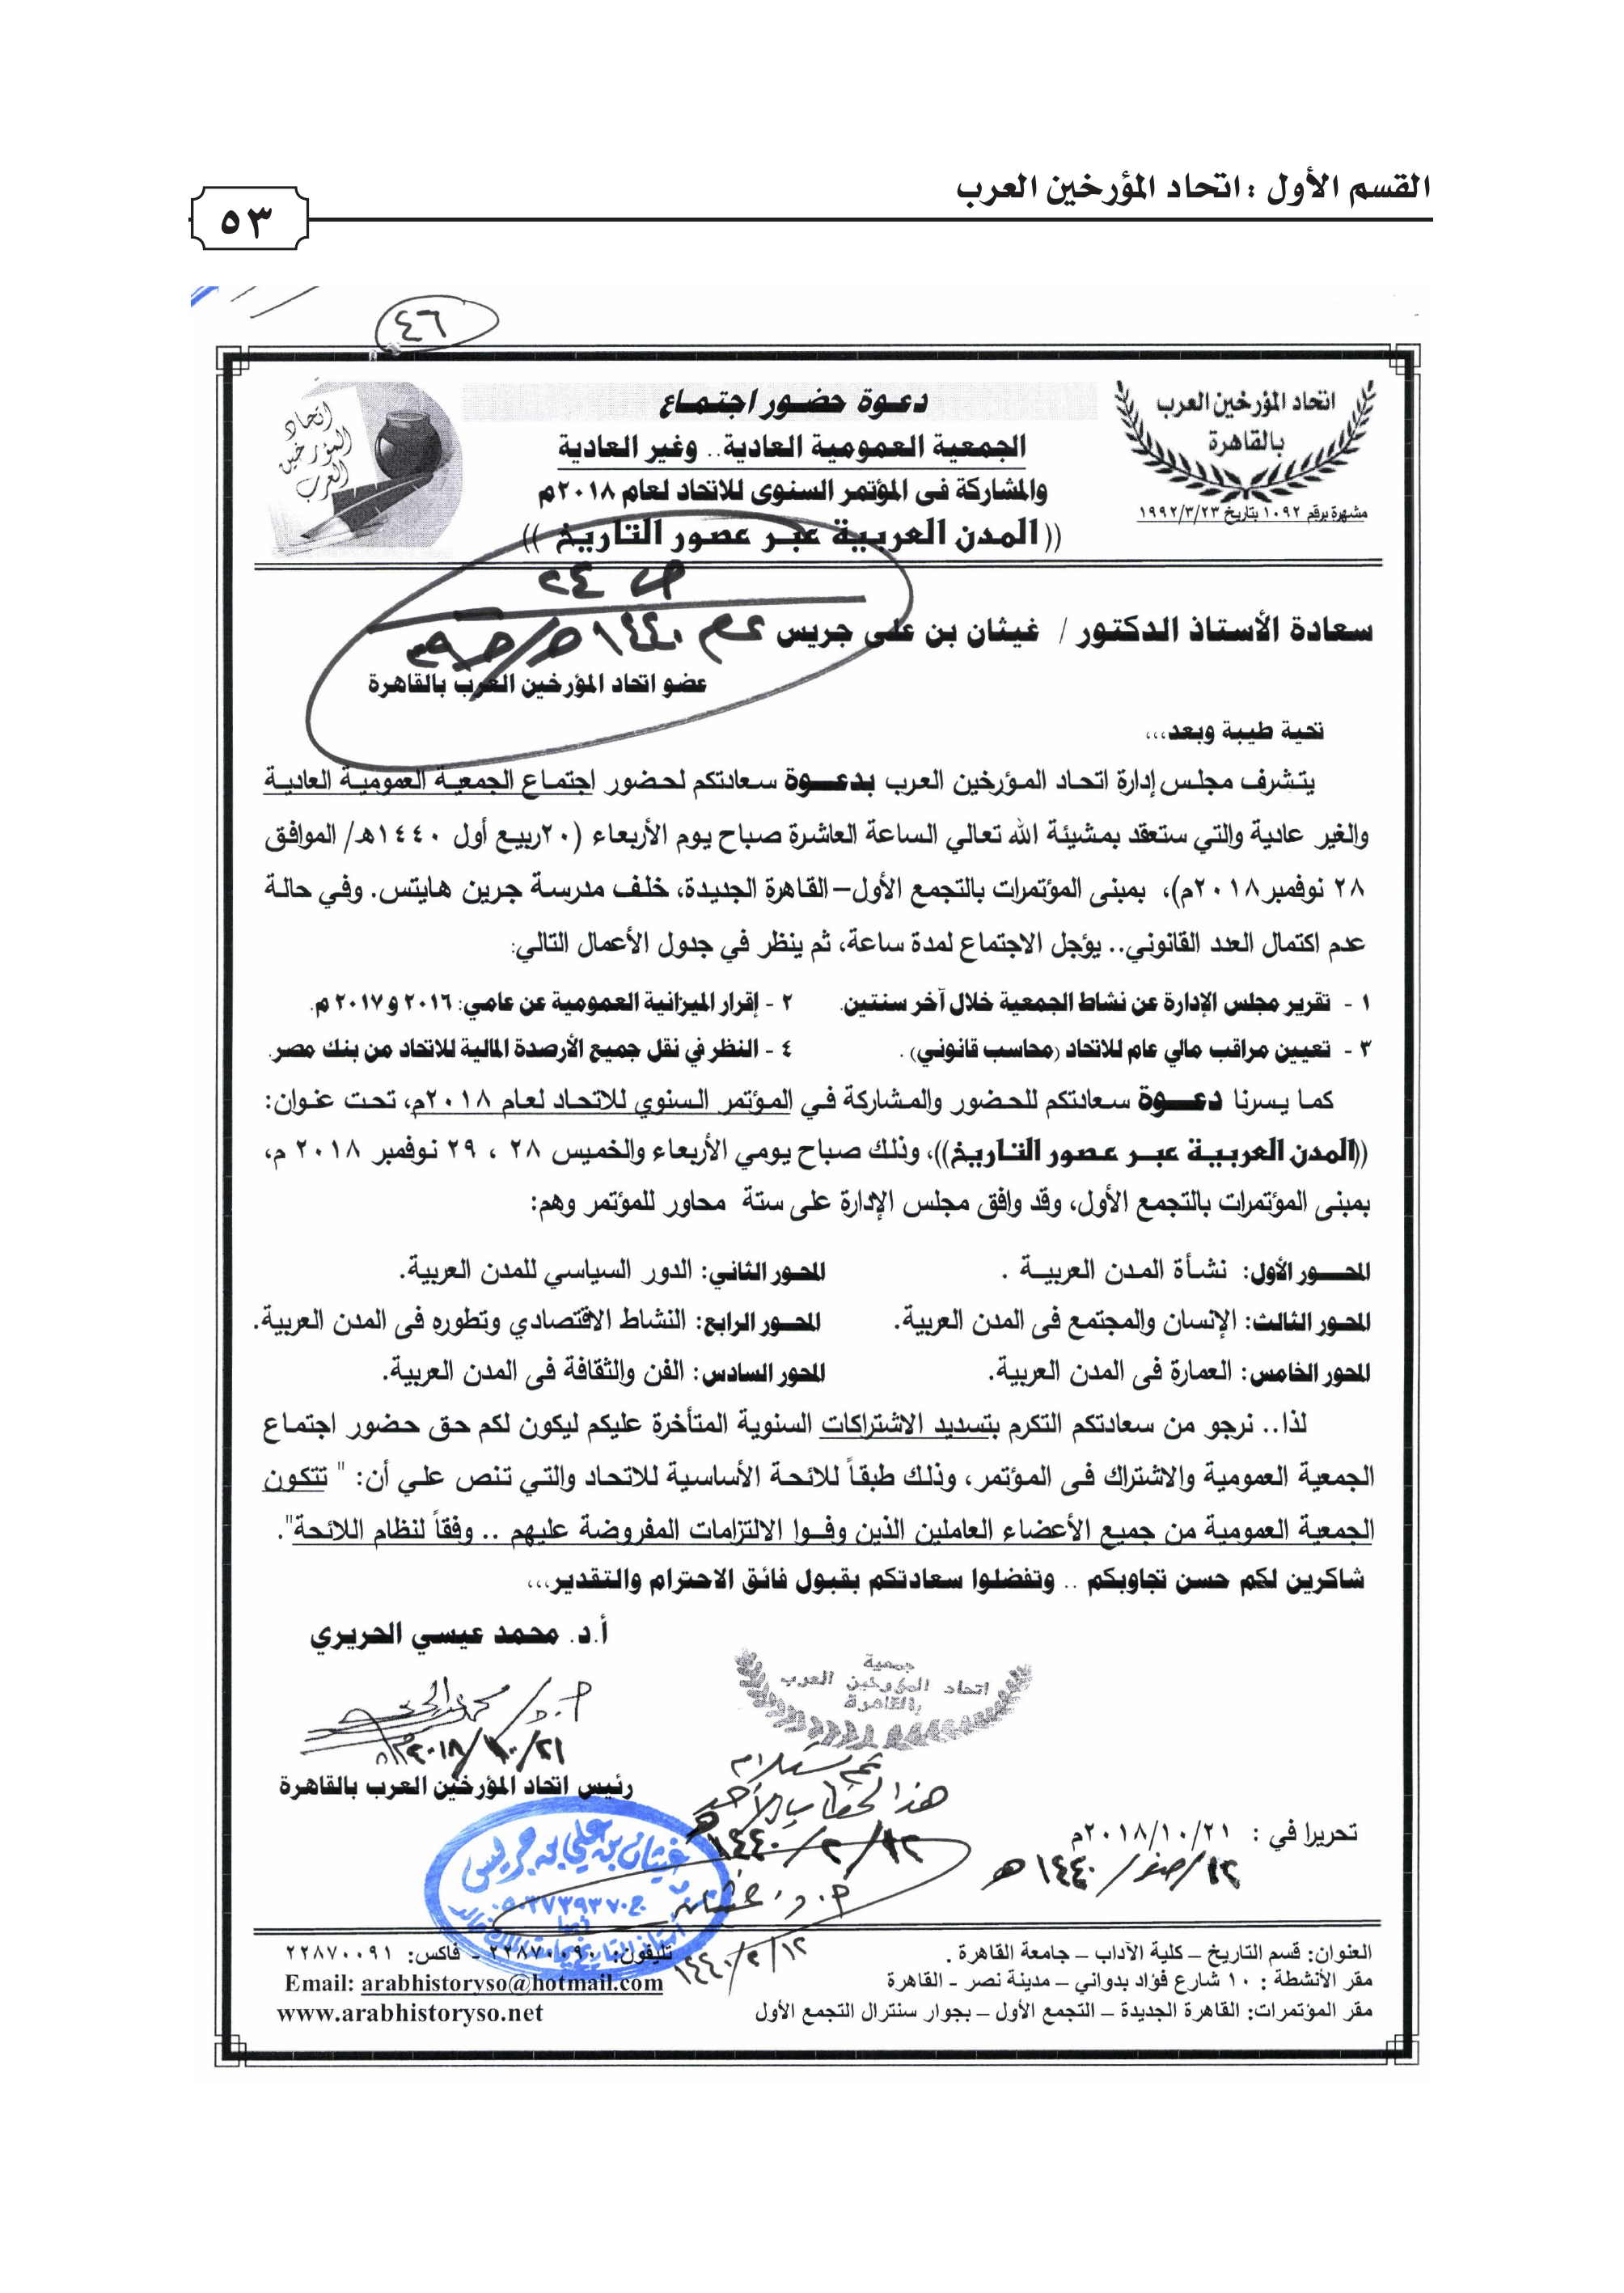 القسم الأول : اتحاد المؤرخين العرب
٥٣
٤٦
اتحاد المؤرخين العرب
بالقاهرة
مشهرة برقم ١٠٩٢ بتاريخ ١٩٩٢/٣/٢٣
دعوة حضور اجتماع
الجمعية العمومية العادية.. وغير العادية
والمشاركة فى المؤتمر السنوى للاتحاد لعام ٢٠١٨م
((المدن العربية عبر عصور التاريخ))
اتحاد
المؤرخين
العرب
سعادة الأستاذ الدكتور / غيثان بن على جريس
عضو اتحاد المؤرخين العرب بالقاهرة
تحية طيبة وبعد،،،
يتشرف مجلس إدارة اتحاد المؤرخين العرب بدعوة سعادتكم لحضور اجتماع الجمعية العمومية العادية
والغير عادية والتي ستعقد بمشيئة الله تعالي الساعة العاشرة صباح يوم الأربعاء (٢٠ربيع أول ١٤٤٠هـ/ الموافق
٢٨ نوفمبر٢٠١٨م)، بمبنى المؤتمرات بالتجمع الأول–القاهرة الجديدة، خلف مدرسة جرين هايتس. وفي حالة
عدم اكتمال العدد القانوني.. يؤجل الاجتماع لمدة ساعة، ثم ينظر في جدول الأعمال التالي:
١ - تقرير مجلس الإدارة عن نشاط الجمعية خلال آخر سنتين. ٢ - إقرار الميزانية العمومية عن عامي: ٢٠١٦ و٢٠١٧ م.
٣ - تعيين مراقب مالي عام للاتحاد (محاسب قانوني) . ٤ - النظر في نقل جميع الأرصدة المالية للاتحاد من بنك مصر.
كما يسرنا دعوة سعادتكم للحضور والمشاركة في المؤتمر السنوي للاتحاد لعام ٢٠١٨م، تحت عنوان:
((المدن العربية عبر عصور التاريخ))، وذلك صباح يومي الأربعاء والخميس ٢٨ ، ٢٩ نوفمبر ٢٠١٨ م،
بمبنى المؤتمرات بالتجمع الأول، وقد وافق مجلس الإدارة على ستة محاور للمؤتمر وهم:
المحور الأول: نشأة المدن العربية . المحور الثاني: الدور السياسي للمدن العربية.
المحور الثالث: الإنسان والمجتمع فى المدن العربية. المحور الرابع: النشاط الاقتصادي وتطوره فى المدن العربية.
المحور الخامس: العمارة فى المدن العربية. المحور السادس: الفن والثقافة فى المدن العربية.
لذا.. نرجو من سعادتكم التكرم بتسديد الاشتراكات السنوية المتأخرة عليكم ليكون لكم حق حضور اجتماع
الجمعية العمومية والاشتراك فى المؤتمر، وذلك طبقاً للائحة الأساسية للاتحاد والتي تنص علي أن: " تتكون
الجمعية العمومية من جميع الأعضاء العاملين الذين وفوا الالتزامات المفروضة عليهم .. وفقاً لنظام اللائحة".
شاكرين لكم حسن تجاوبكم .. وتفضلوا سعادتكم بقبول فائق الاحترام والتقدير،،،
أ.د. محمد عيسي الحريري
جمعية
اتحاد المؤرخين العرب
بالقاهرة
رئيس اتحاد المؤرخين العرب بالقاهرة
هذا الخطاب
١٤٤٠/٢/١٢هـ
تحريرا في : ٢٠١٨/١٠/٢١م
١٢/صفر/١٤٤٠هـ
غيثان بن علي بن جريس
١٤٤٠/٢/١٢
العنوان: قسم التاريخ – كلية الآداب – جامعة القاهرة . تليفون: ٢٢٨٧٠٠٩٠ - فاكس: ٢٢٨٧٠٠٩١
مقر الأنشطة : ١٠ شارع فؤاد بدواني – مدينة نصر - القاهرة Email: arabhistoryso@hotmail.com
مقر المؤتمرات: القاهرة الجديدة – التجمع الأول – بجوار سنترال التجمع الأول www.arabhistoryso.net